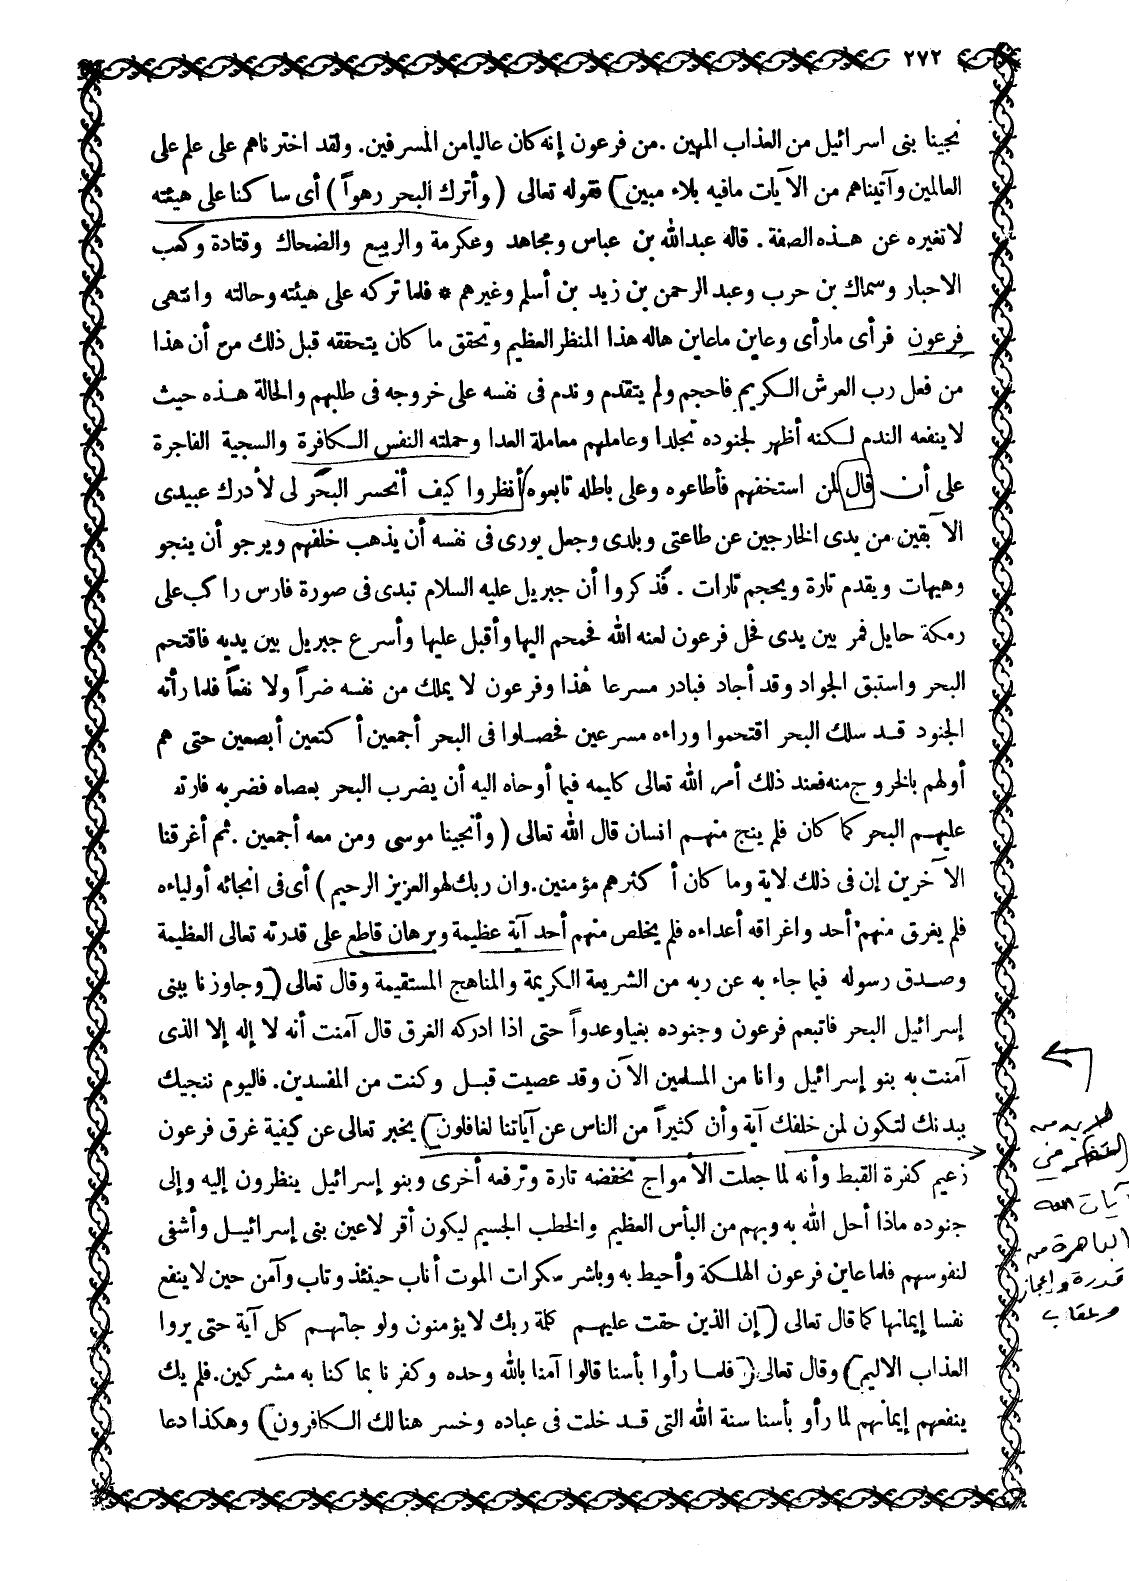 ٢٧٢
نجينا بنى اسرائيل من العذاب المهين . من فرعون إنه كان عاليا من المسرفين. ولقد اخترناهم على علم على
العالمين وآتيناهم من الآيات مافيه بلاء مبين ) فقوله تعالى ( وأترك البحر رهواً ) أى ساكنا على هيئته
لاتغيره عن هذه الصفة . قاله عبدالله بن عباس ومجاهد وعكرمة والربيع والضحاك وقتادة وكعب
الاحبار وسماك بن حرب وعبد الرحمن بن زيد بن أسلم وغيرهم * فلما تركه على هيئته وحالته وانتهى
فرعون فرأى مارأى وعاين ماعاين هاله هذا المنظر العظيم وتحقق ما كان يتحققه قبل ذلك من أن هذا
من فعل رب العرش الكريم فاحجم ولم يتقدم وندم فى نفسه على خروجه فى طلبهم والحالة هذه حيث
لاينفعه الندم لكنه أظهر لجنوده تجلدا وعاملهم معاملة العدا وحملته النفس الكافرة والسجية الفاجرة
على أن قال لمن استخفهم فأطاعوه وعلى باطله تابعوه أنظروا كيف أنحسر البحر لى لأدرك عبيدى
الآبقين من يدى الخارجين عن طاعتى وبلدى وجعل يورى فى نفسه أن يذهب خلفهم ويرجو أن ينجو
وهيهات ويقدم تارة ويحجم تارات . فذكروا أن جبريل عليه السلام تبدى فى صورة فارس راكب على
رمكة حايل فمر بين يدى فحل فرعون لعنه الله فحمحم اليها وأقبل عليها وأسرع جبريل بين يديه فاقتحم
البحر واستبق الجواد وقد أجاد فبادر مسرعا هذا وفرعون لا يملك من نفسه ضراً ولا نفعاً فلما رأته
الجنود قد سلك البحر اقتحموا وراءه مسرعين فحصلوا فى البحر أجمعين أكتعين أبصعين حتى هم
أولهم بالخروج منه فعند ذلك أمر الله تعالى كليمه فيما أوحاه اليه أن يضرب البحر بعصاه فضربه فارتد
عليهم البحر كما كان فلم ينج منهم انسان قال الله تعالى ( وأنجينا موسى ومن معه أجمعين . ثم أغرقنا
الآخرين إن فى ذلك لاية وما كان أكثرهم مؤمنين. وان ربك لهو العزيز الرحيم ) أى فى انجائه أولياءه
فلم يغرق منهم أحد واغراقه أعداءه فلم يخلص منهم أحد آية عظيمة وبرهان قاطع على قدرته تعالى العظيمة
وصدق رسوله فيما جاء به عن ربه من الشريعة الكريمة والمناهج المستقيمة وقال تعالى ( وجاوزنا ببنى
إسرائيل البحر فاتبعم فرعون وجنوده بغيا وعدواً حتى اذا ادركه الغرق قال آمنت أنه لا إله إلا الذى
آمنت به بنو إسرائيل وانا من المسلمين الآن وقد عصيت قبل وكنت من المفسدين. فاليوم ننجيك
ببدنك لتكون لمن خلفك آية وأن كثيراً من الناس عن آياتنا لغافلون ) يخبر تعالى عن كيفية غرق فرعون
زعيم كفرة القبط وأنه لما جعلت الأمواج تخفضه تارة وترفعه أخرى وبنو إسرائيل ينظرون إليه وإلى
جنوده ماذا أحل الله به وبهم من البأس العظيم والخطب الجسيم ليكون أقر لاعين بنى إسرائيل وأشفى
لنفوسهم فلما عاين فرعون الهلكة وأحيط به وباشر سكرات الموت أناب حينئذ وتاب وآمن حين لاينفع
نفسا إيمانها كما قال تعالى ( إن الذين حقت عليهم كلمة ربك لايؤمنون ولو جاتهم كل آية حتى يروا
العذاب الاليم ) وقال تعالى ( فلما رأوا بأسنا قالوا آمنا بالله وحده وكفرنا بما كنا به مشركين. فلم يك
ينفعهم إيمانهم لما رأو بأسنا سنة الله التى قد خلت فى عباده وخسر هنالك الكافرون ) وهكذا دعا
لمزيد من
التفكر في
آيات الله
الباهرة من
قدرة وإعجاز
وعقاب